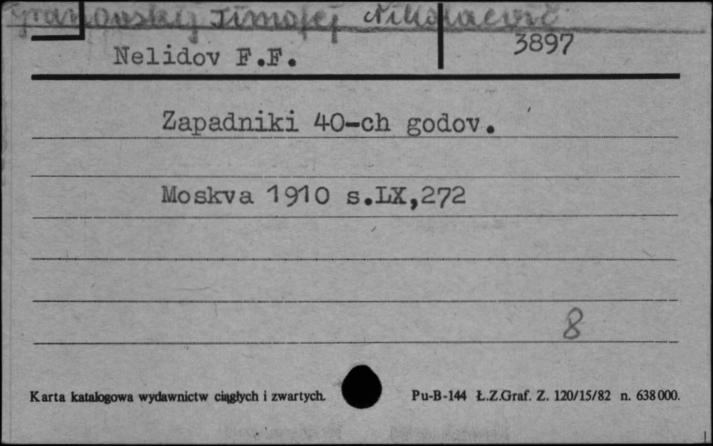 Granovskij Timofej Nikolaevič
3897
Nelidov F.F.
Zapadniki 40-ch godov.
Moskva 1910 s.LX,272
8
Karta katalogowa wydawnictw ciągłych i zwartych.
Pu-B-144 Ł.Z.Graf. Z. 120/15/82 n. 638000.